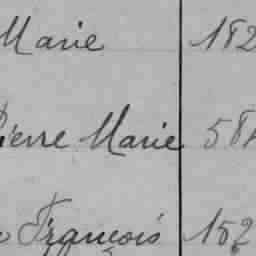 Marie 182
Pierre Marie 58
François 152